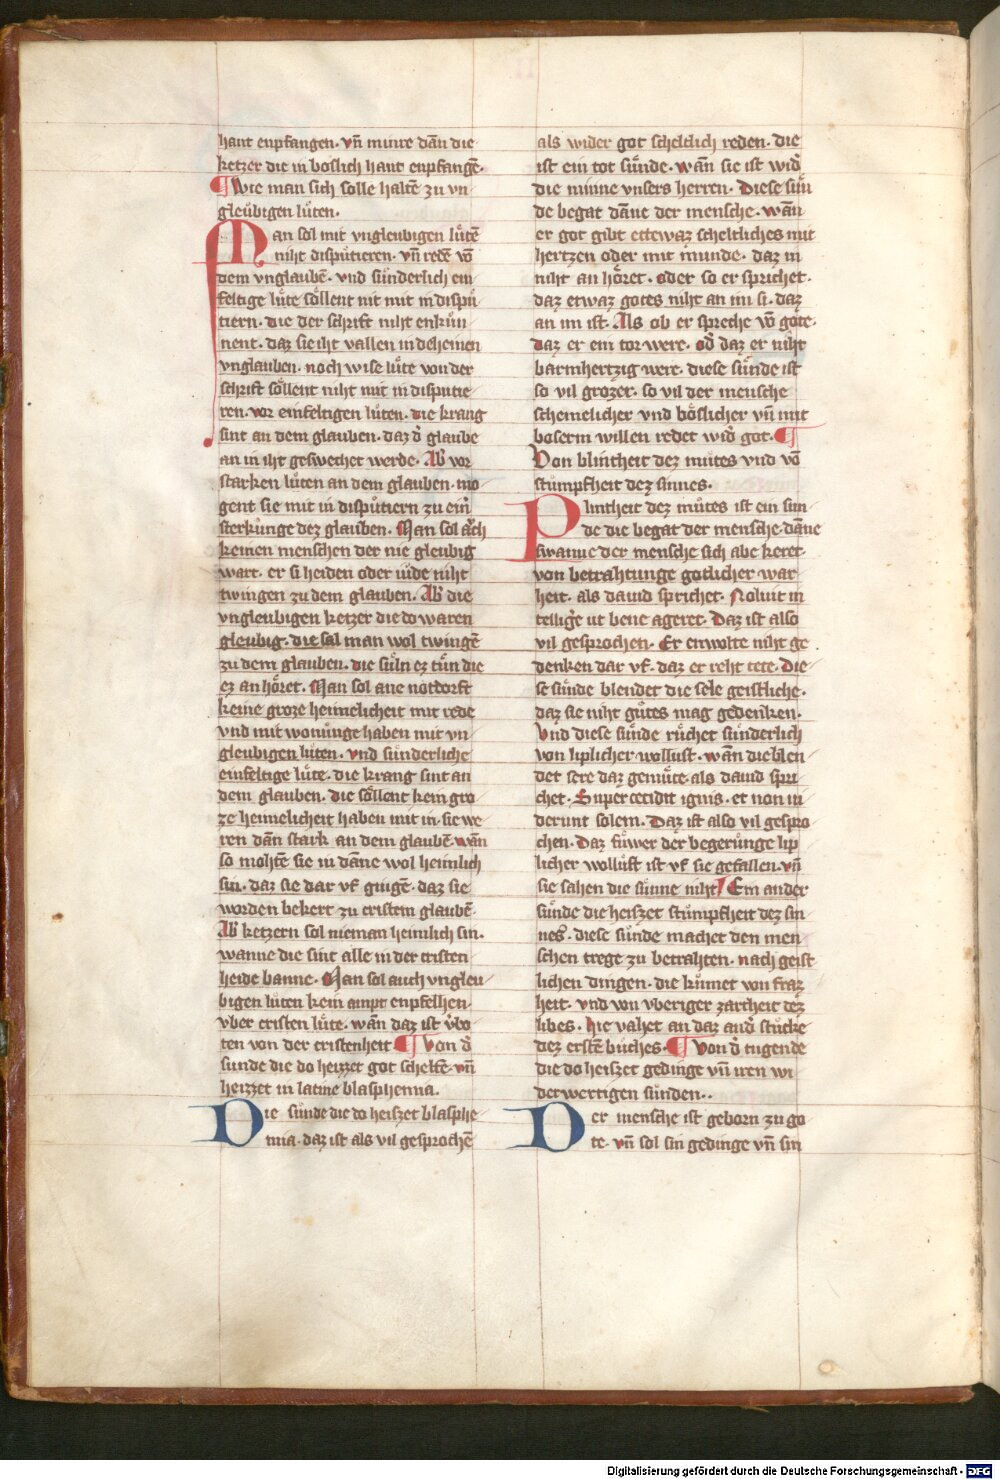 hant enpfangen. vn̄ minre dān die
ketzer die in boslich hant enpfangē.
¶ Wie man sich solle haltē zu vn
gleůbigen lůten.
Man sol mit vngleubigen lůtē
niht disputieren. vn̄ redē vō
dem vnglaubē. vnd sůnderlich ein
feltige lůte sȯllent nit mit in dispu
tiern. die der schrift niht enkůn
nent. daz sie iht vallen in deheinen
vnglauben. noch wise lůte von der
schrift sȯllent niht mit in disputie
ren. vor einfeltigen lůten. die krang
sint an dem glauben. daz d̓ glaube
an in iht geswechet werde. Ab̓ vor
starken lůten an dem glauben. mo
gent sie mit in disputiern zu ein̓
sterkůnge dez glauben. Man sol auch
keinen menschen der nie gleubig
wart. er si heiden oder iůde niht
twingen zu dem glauben. Ab̓ die
vngleubigen ketzer die do waren
gleubig. die sal man wol twingē
zu dem glauben. die sůln ez tůn die
ez an hȯret. Man sol ane notdorft
keine groze heimelicheit mit rede
vnd mit wonůnge haben mit vn
gleubigen lůten. vnd sůnderliche
einfeltige lůte. die krang sint an
dem glauben. die sȯllent kein gro
ze heimelicheit haben mit in. sie we
ren dān stark an dem glaubē. wān
so mohtē sie in dāne wol heimlich
sin. daz sie dar vf gingē. daz sie
worden bekert zu cristem glaubē.
Ab̓ ketzern sol nieman heimlich sin.
wanne die sint alle in der cristen
heide banne. Man sol auch vngleu
bigen lůten kein ampt enpfelhen.
vber cristen lůte. wān daz ist v̓bo
ten von der cristenheit ¶ Von d̓
sunde die do heizzet got scheltē. vn̄
heizzet in latine blasphemia.
Die sůnde die do heiszet blasphe
mia. daz ist als vil gesprochē
als wider got scheltlich reden. die
ist ein tot sůnde. wān sie ist wid̓
die minne vnsers herren. Diese sůn
de begat dāne der mensche. wān
er got gibt ettewaz scheltliches mit
hertzen oder mit můnde. daz in
niht an hȯret. oder so er sprichet.
daz etwaz gotes niht an im si. daz
an im ist. Als ob er spreche vō gote.
daz er ein tor were. od̓ daz er niht
barmhertzig were. diese sůnde ist
so vil grozer. so vil der mensche
schemelicher vnd bȯslicher vn̄ mit
boserm willen redet wid̓ got. ¶
Von blintheit dez mutes vnd vō
stůmpfheit dez sinnes.
Plintheit dez můtes ist ein sun
de die begat der mensche. dāne
swanne der mensche sich abe keret
von betrahtunge gotlicher war
heit. als dauid sprichet. Noluit in
tellig̓e ut bene ageret. Daz ist also
vil gesprochen. Er enwolte niht ge
denken dar vf. daz er reht tete. Die
se sůnde blendet die sele geistliche.
daz sie niht gůtes mag gedenken.
Vnd diese sůnde růchet sůnderlich
von liplicher wollust. wān die blen
det sere daz gemůte. als dauid spri
chet. Supercecidit ignis. et non vi
derunt solem. Daz ist also vil gespro
chen. Daz fůwer der begerůnge lip
licher wollůst ist vf sie gefallen. vn̄
sie sahen die sůnne niht / Ein ander
sůnde die heiszet stůmpfheit dez sin
nes. diese sůnde machet den men
schen trege zu betrahten. nach geist
lichen dingen. die kůmet von fraz
heit. vnd von vberiger zartheit dez
libes. hie vahet an daz and̓ stůcke
dez erstē bůches. ¶ Von d̓ tugende
die do heiszet gedinge vn̄ iren wi
derwertigen sůnden..
Der mensche ist geborn zu go
te. vn̄ sol sin gedinge vn̄ sin
Digitalisierung gefördert durch die Deutsche Forschungsgemeinschaft - DFG